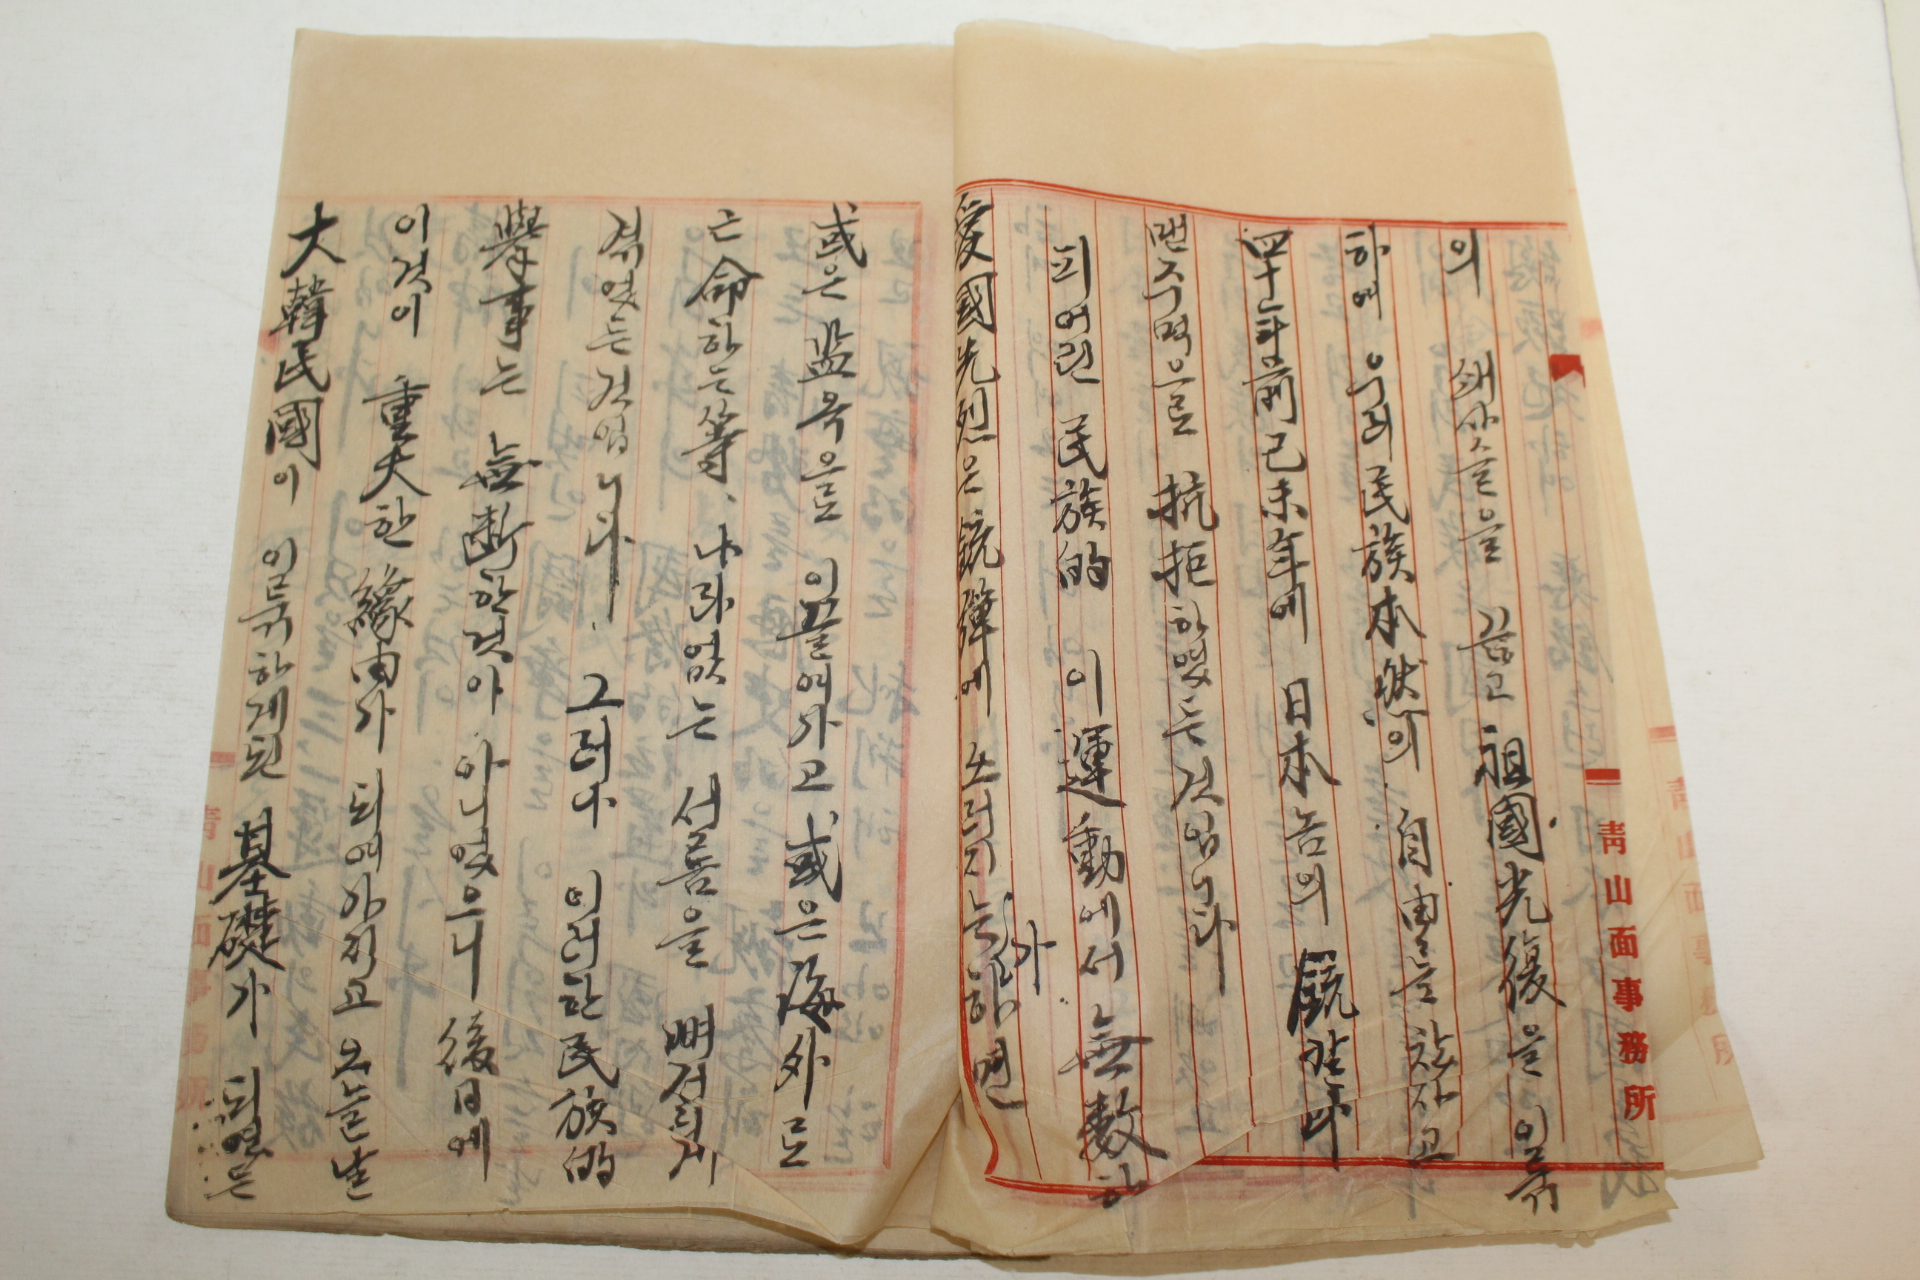 의 쇄사슬을 끊고 祖國光復을 이룩
하여 우리民族本然의 自由를 찾자고
四十年前己未年에 日本놈의 銃칼아
맨주먹으로 抗拒하였든것입니다
피어린 民族的 이運動에서 無數한
愛國先烈은 銃彈에 쓰러지는가하면
或은 監옥으로 이끌여가고 或은 海外로
亡命하는等、나라없는 서름을 뼈저리게
겪었든것입니다. 그러나 이러한民族的
擧事는 無斷한것이 아니였으니 後日에
이것이 重大한緣由가 되여가지고 오늘날
大韓民國이 이룩하게된 基礎가 되였든
靑山面事務所